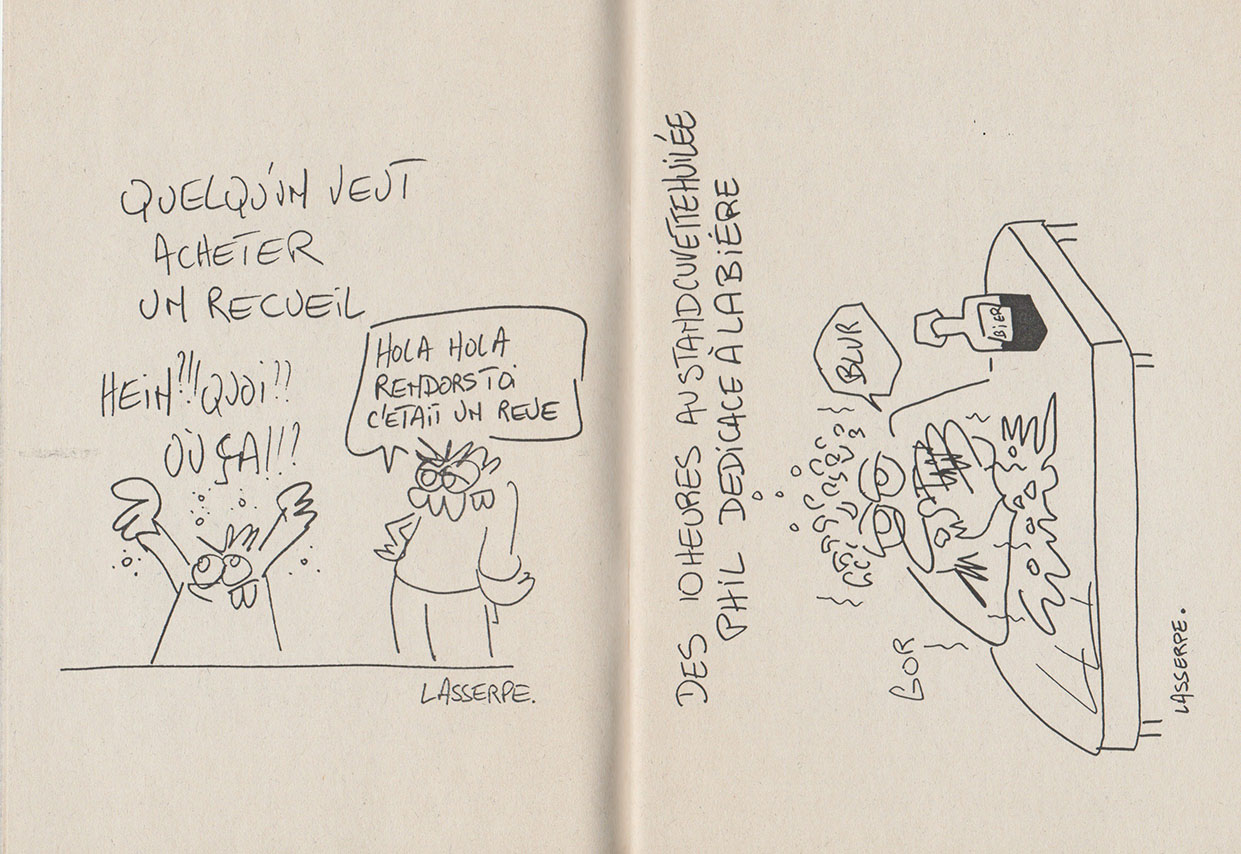 QUELQU'UN VEUT
ACHETER
UN RECUEIL
HEIN?!! QUOI??
OÙ ÇA!!?
HOLA HOLA
RENDORS TOI
C'ETAIT UN REVE
LASSERPE.
DES 10 HEURES AU STAND CUVETTE HUILÉE
PHIL DEDICACE À LA BIÈRE
BLUR
BIER
GOR
LASSERPE.